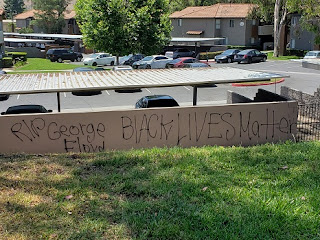 RIP George BLACK LIVES Matter
Floyd